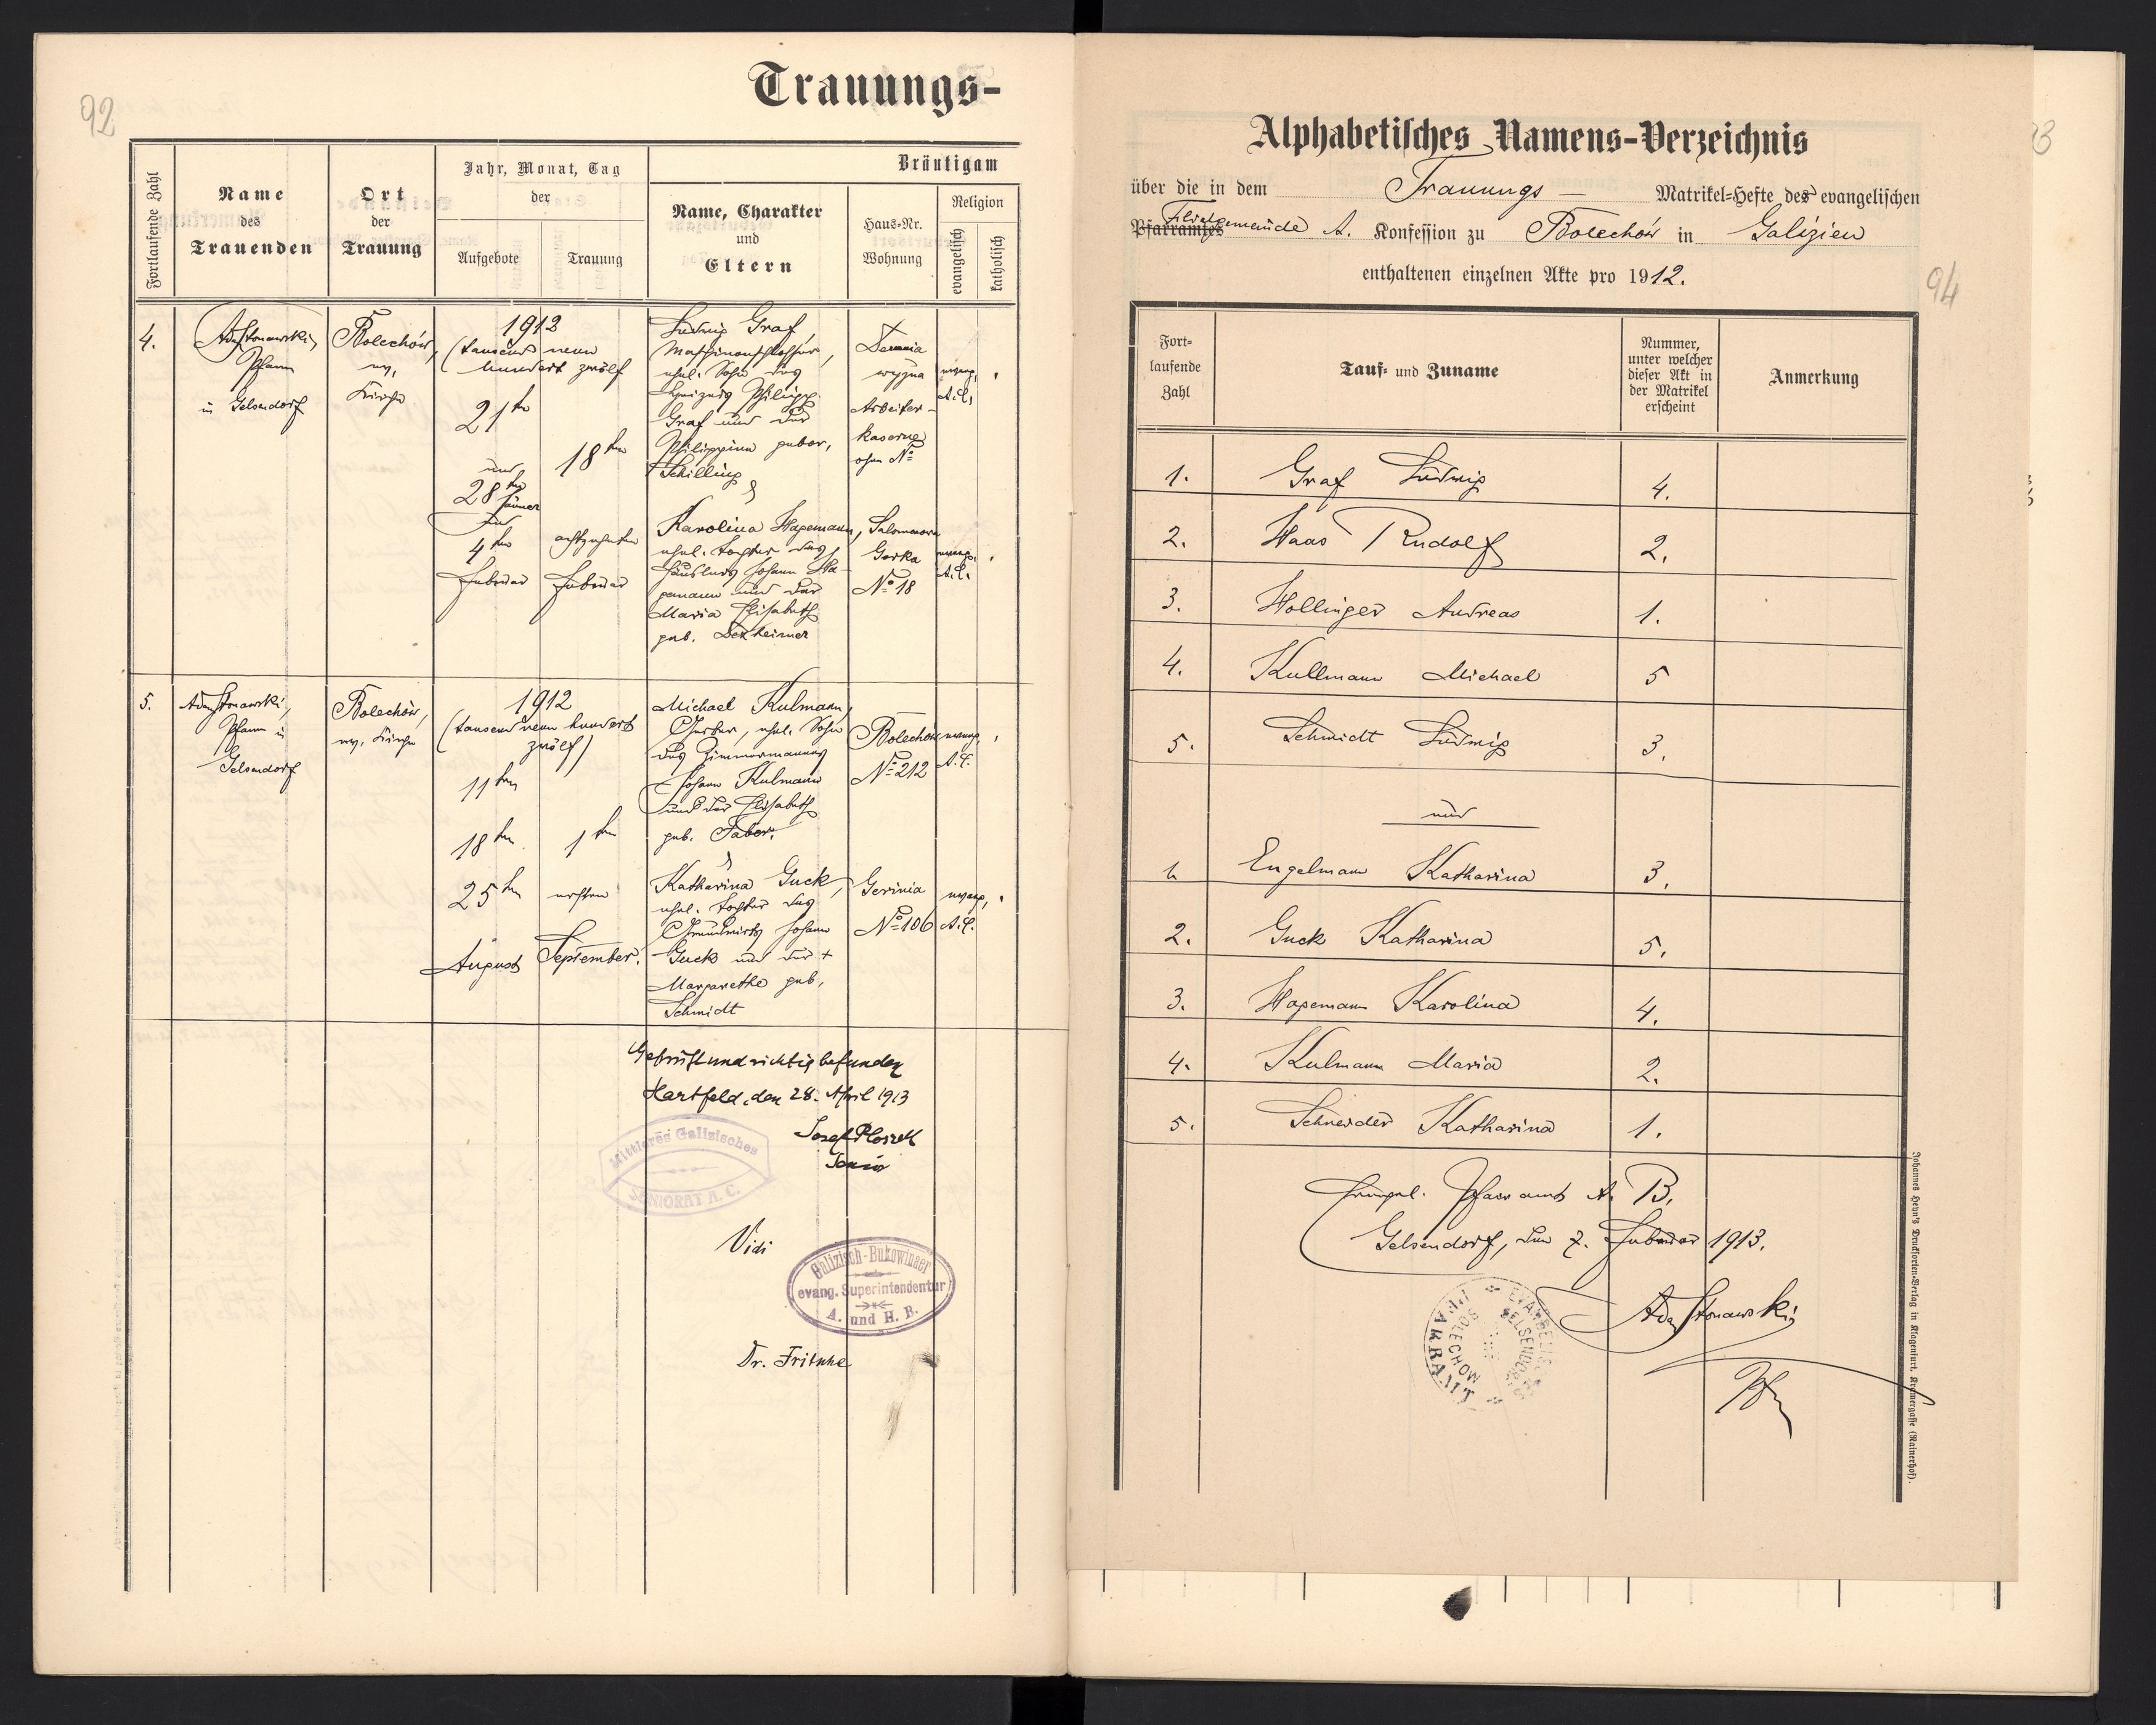 92
Trauungs-
Fortlaufende Zahl
Name
des
Trauenden
Ort
der
Trauung
Jahr, Monat, Tag
der
Aufgebote
Trauung
Bräutigam
Name, Charakter
und
Eltern
Haus-Nr.
Wohnung
Religion
evangelisch
katholisch
4.
Pfarrer
in Gelsendorf
Bolechów,
ev.
Kirche
1912
(tausend neun
hundert zwölf
21ten
und
28ten
Jänner
und
4ten
Februar
18ten
achtzehnten
Februar
Ludwig Graf,
Maschinenschlosser,
ehel. Sohn des
Philipp
Graf und der
Philippina gebor.
Schilling
&
Karolina Hagemann,
ehel. Tochter des
Häuslers Johann Ha-
gemann und der
Maria Elisabeth
geb. Dexheimer
Demnia
wyżna
Arbeiter-
kaserne
ohne No
evang.
A. C.
Salamonowa
Gorka
No 18
evang.
A. C.
5.
Pfarrer in
Gelsendorf
Bolechów,
ev. Kirche
1912
(tausend neun hundert
zwölf)
11ten
18ten
25ten
August
1ten
ersten
September.
Michael Kulmann,
Gerber, ehel. Sohn
des Zimmermannes
Johann Kulmann
und der Elisabeth
geb. Tabor.
&
Katharina Guck,
ehel. Tochter des
Grundwirts Johann
Guck und der +
Margarethe geb.
Schmidt
Bolechów
No 212
evang.
A. C.
Gerinia
No 106
evang.
A. C.
Geprüft und richtig befunden
Hartfeld, den 28. April 1913
Josef Ploszek
Senior
Mittleres Galizisches
SENIORAT A. C.
Vidi
Galizisch-Bukowinaer
evang. Superintendentur
A. und H. B.
Dr. Fritsche
93
Alphabetisches Namens-Verzeichnis
über die in dem Trauungs — Matrikel-Hefte des evangelischen
Pfarramtes Filialgemeinde A. Konfession zu Bolechów in Galizien
enthaltenen einzelnen Akte pro 1912.
94
Fort-
laufende
Zahl
Tauf- und Zuname
Nummer,
unter welcher
dieser Akt in
der Matrikel
erscheint
Anmerkung
1. Graf Ludwig 4.
2. Haas Rudolf 2.
3. Hollinger Andreas 1.
4. Kullmann Michael 5
5. Schmidt Ludwig 3.
und
1. Engelman Katharina 3.
2. Guck Katharina 5.
3. Hagemann Karolina 4.
4. Kulmann Maria 2.
5. Schneider Katharina 1.
Evangel. Pfarramt A. B.
Gelsendorf, den 7. Februar 1913.
EVANGELISCHES
PFARRAMT
GELSENDORF
BOLECHOW
Johannes Heyn's Drucksorten-Verlag in Klagenfurt, Kramergasse (Rainerhof).